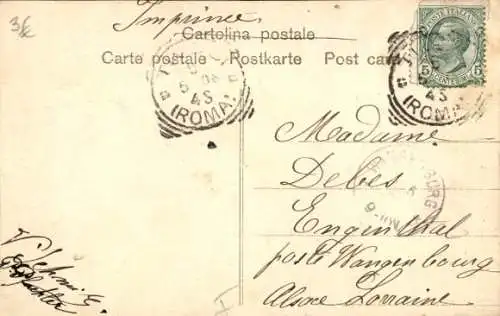 3€
Imprimee
Cartolina postale
Carte postale Postkarte Post card
POSTE ITALIANE
5 CENTESIMI 5
(ROMA)
(ROMA)
Madame
Debes
Engenthal
poste Wangenbourg
Alsace Lorraine